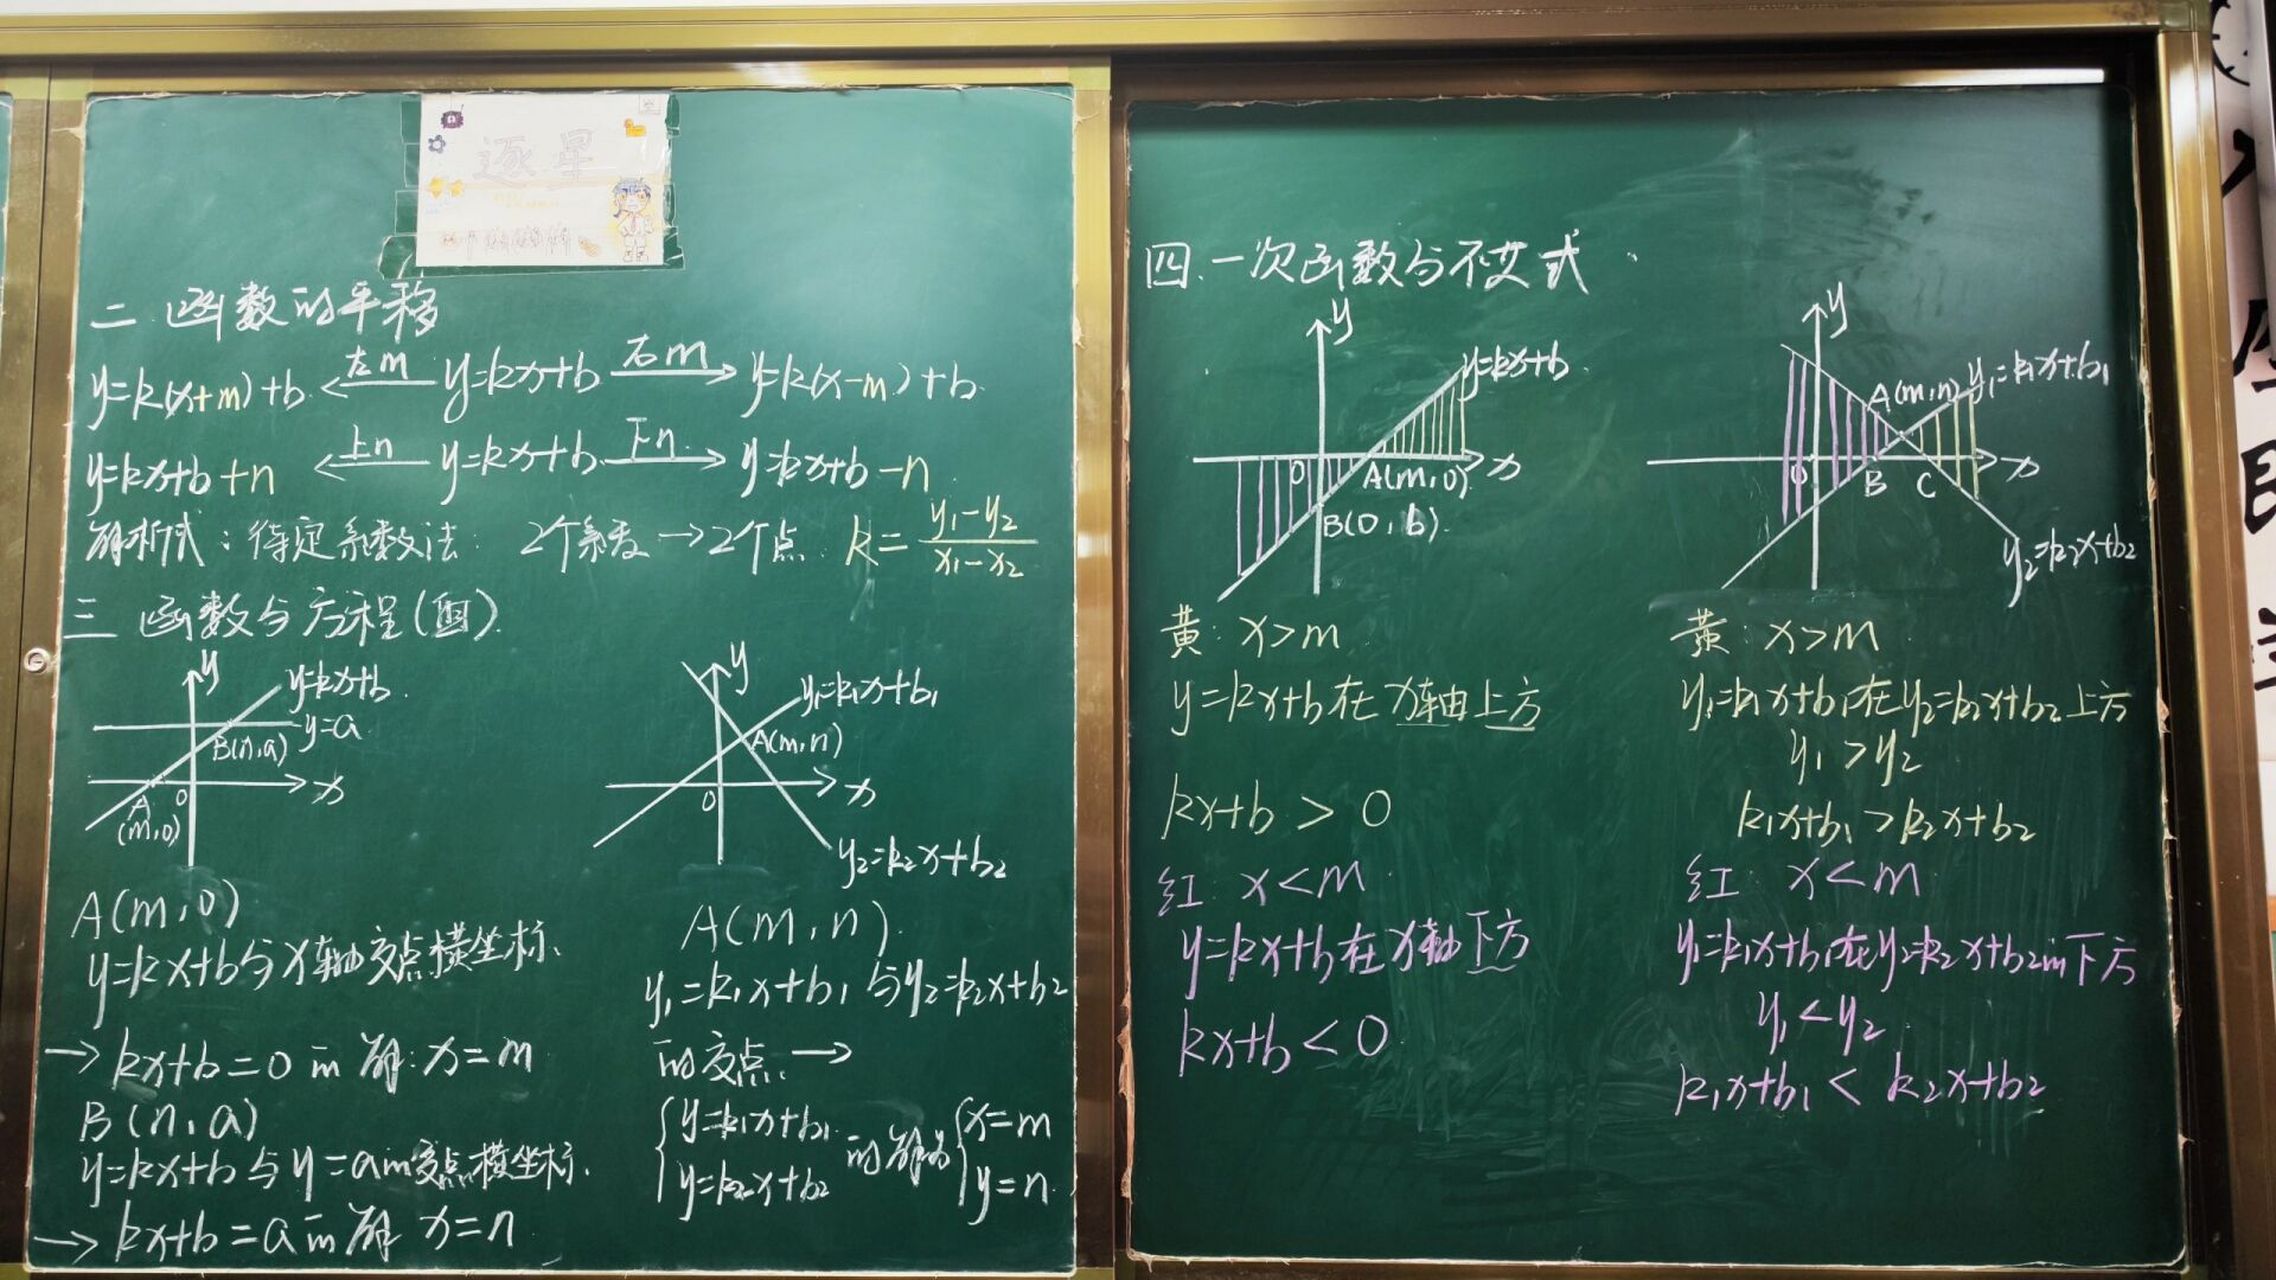 逐星
二.函数的平移
y=k(x+m)+b ←左m— y=kx+b —右m→ y=k(x-m)+b
y=kx+b+n ←上n— y=kx+b —下n→ y=kx+b-n
解析式:待定系数法. 2个系数→2个点. k=(y₁-y₂)/(x₁-x₂)
三 函数与方程(组)
y
y=kx+b
y=a
B(n,a)
x
A
(m,0)
0
y
y₁=k₁x+b₁
A(m,n)
x
0
y₂=k₂x+b₂
A(m,0)
y=kx+b与x轴交点横坐标.
→kx+b=0的解:x=m
B(n,a)
y=kx+b与y=a的交点横坐标.
→kx+b=a的解 x=n
A(m,n).
y₁=k₁x+b₁与y₂=k₂x+b₂
的交点.→
{y=k₁x+b₁ 的解为 {x=m
y=k₂x+b₂ y=n
四.一次函数与不等式.
y
y=kx+b
0
A(m,0)
x
B(0,b)
y
A(m,n)
y₁=k₁x+b₁
0
B
C
x
y₂=k₂x+b₂
黄:x>m
y=kx+b在x轴上方
kx+b>0
红:x<m
y=kx+b在x轴下方
kx+b<0
黄:x>m
y₁=k₁x+b₁在y₂=k₂x+b₂上方
y₁>y₂
k₁x+b₁>k₂x+b₂
红 x<m
y₁=k₁x+b₁在y₂=k₂x+b₂的下方
y₁<y₂
k₁x+b₁<k₂x+b₂